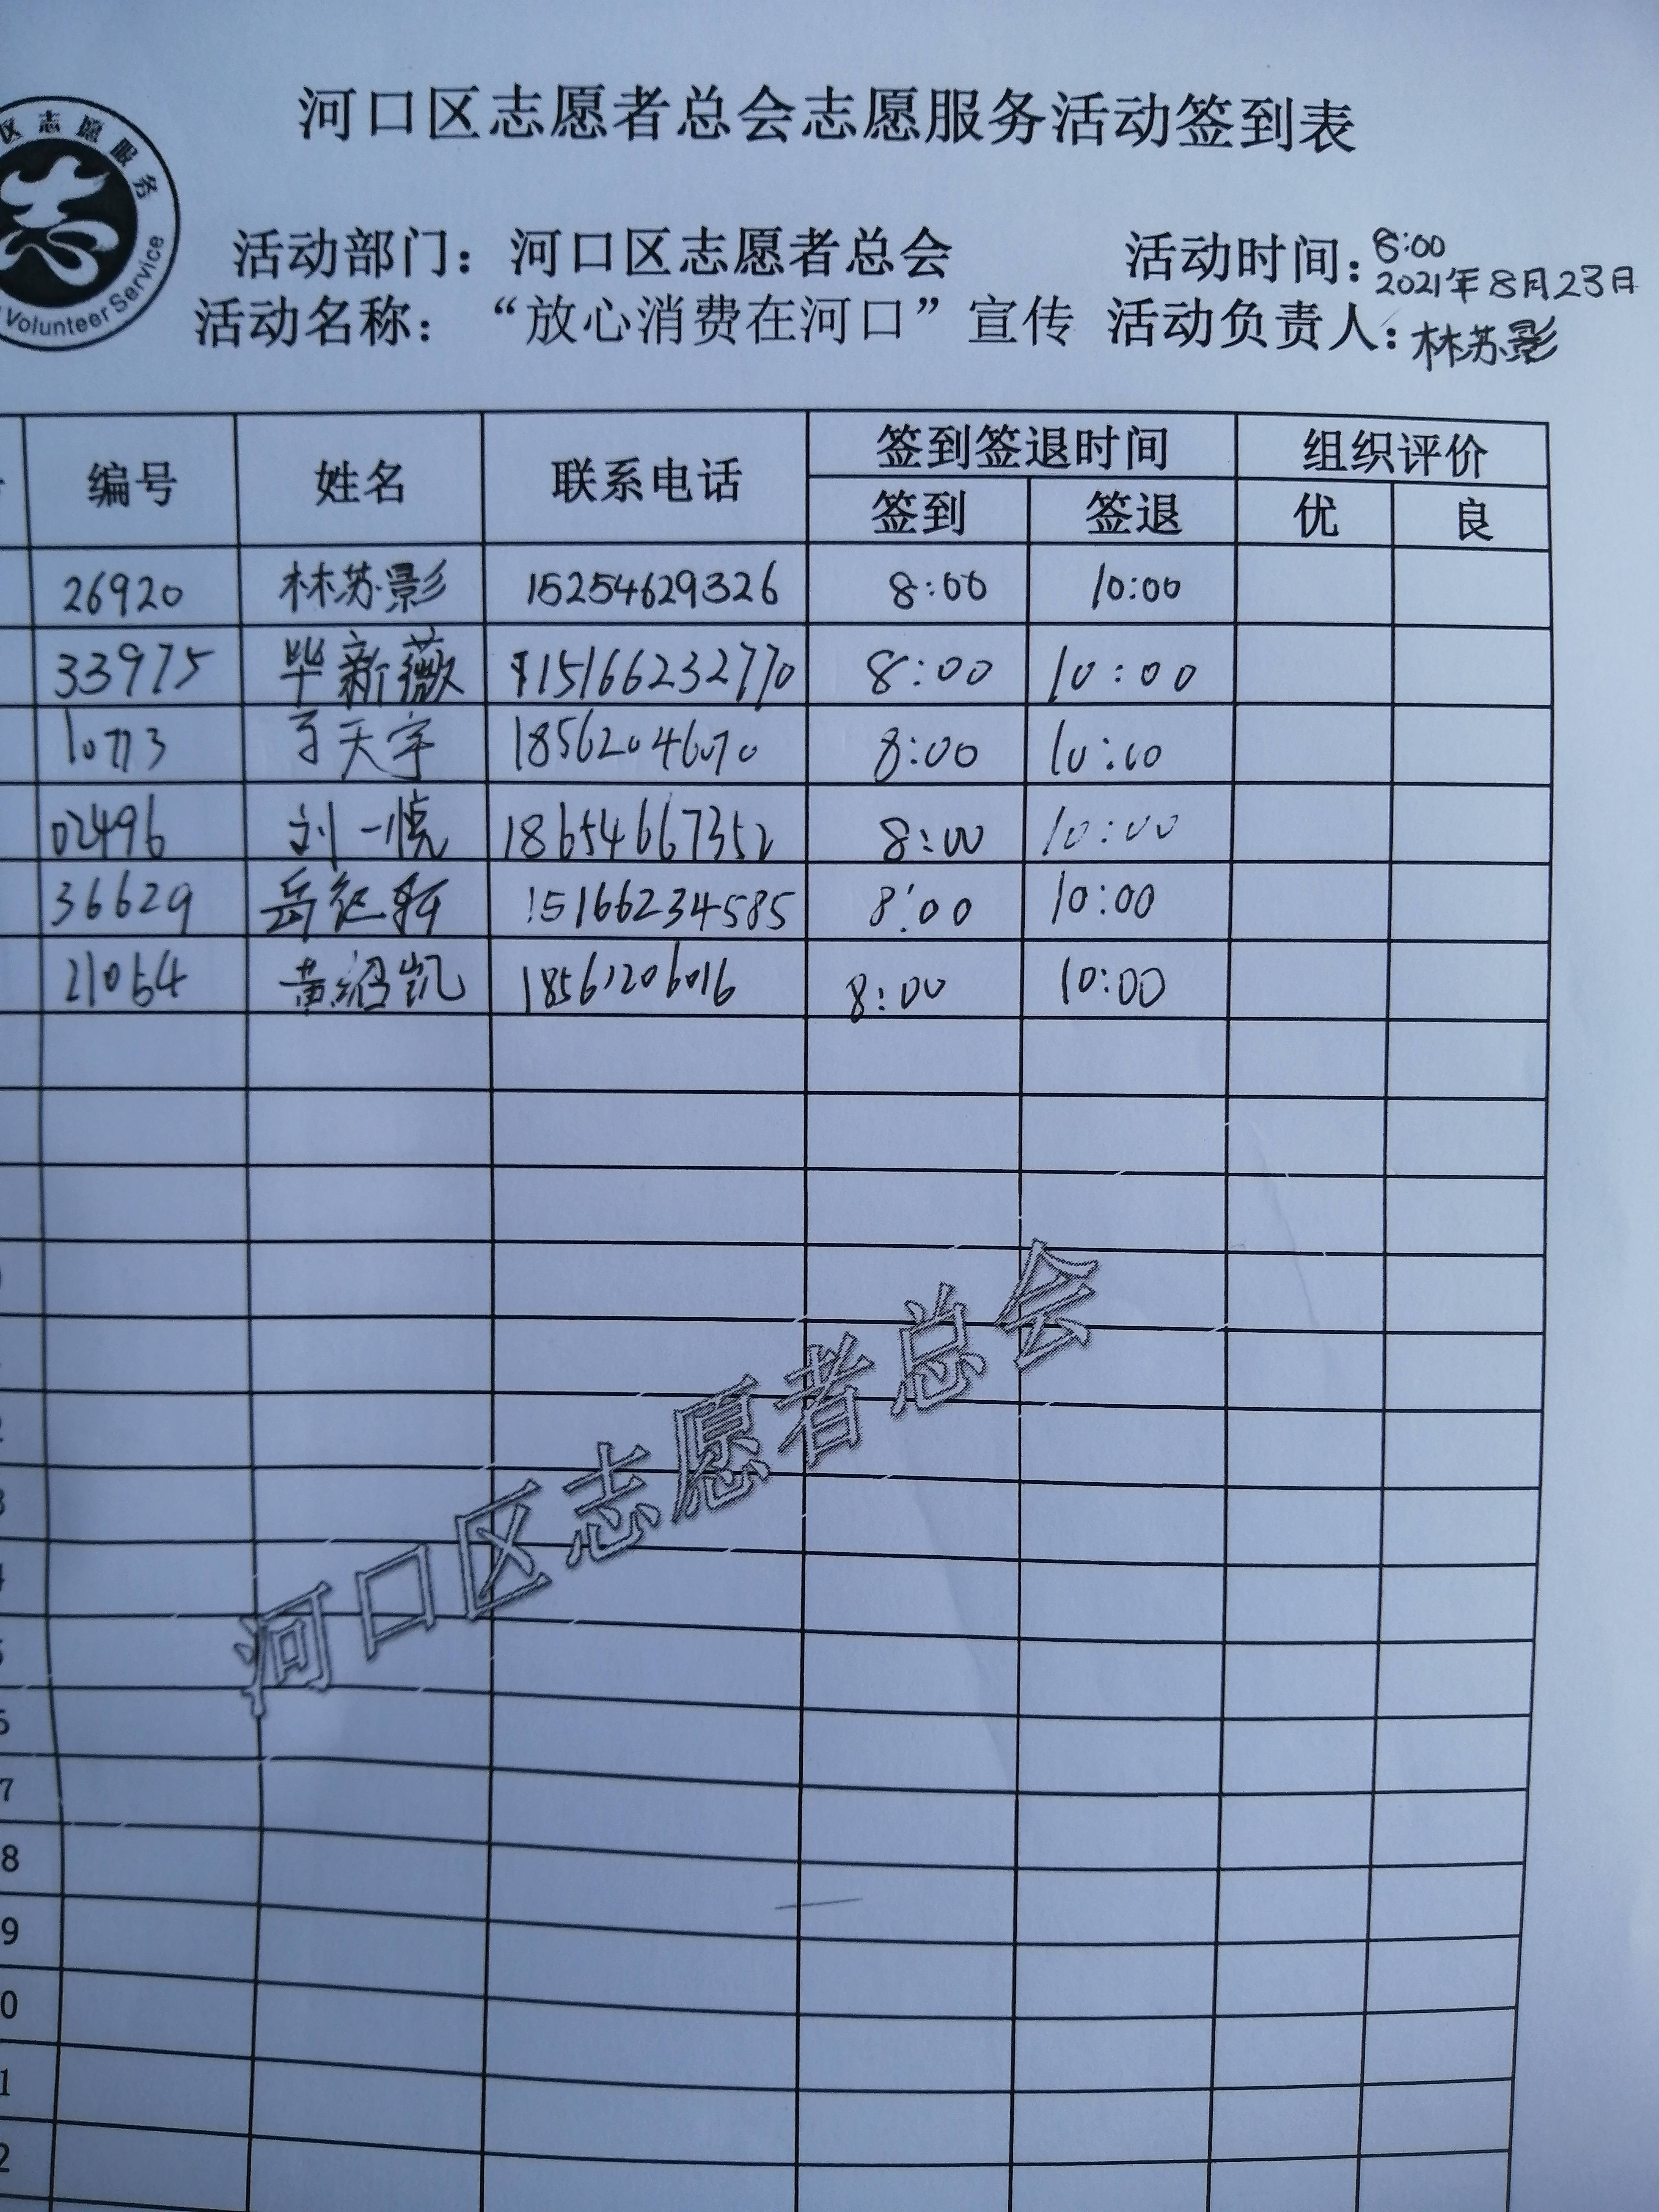 区志愿服务
Volunteer Service
河口区志愿者总会志愿服务活动签到表
活动部门：河口区志愿者总会 活动时间：8:00
2021年8月23日
活动名称：“放心消费在河口”宣传 活动负责人：林苏影
编号 姓名 联系电话 签到签退时间 组织评价
签到 签退 优 良
26920 林苏影 15254629326 8:00 10:00
33975 毕新薇 15166232770 8:00 10:00
10773 于天宇 18562046070 8:00 10:00
02496 刘一悦 18654667352 8:00 10:00
36629 岳 15166234585 8:00 10:00
21064 黄绍凯 18561206016 8:00 10:00
河口区志愿者总会
3
4
5
6
7
8
9
0
1
2